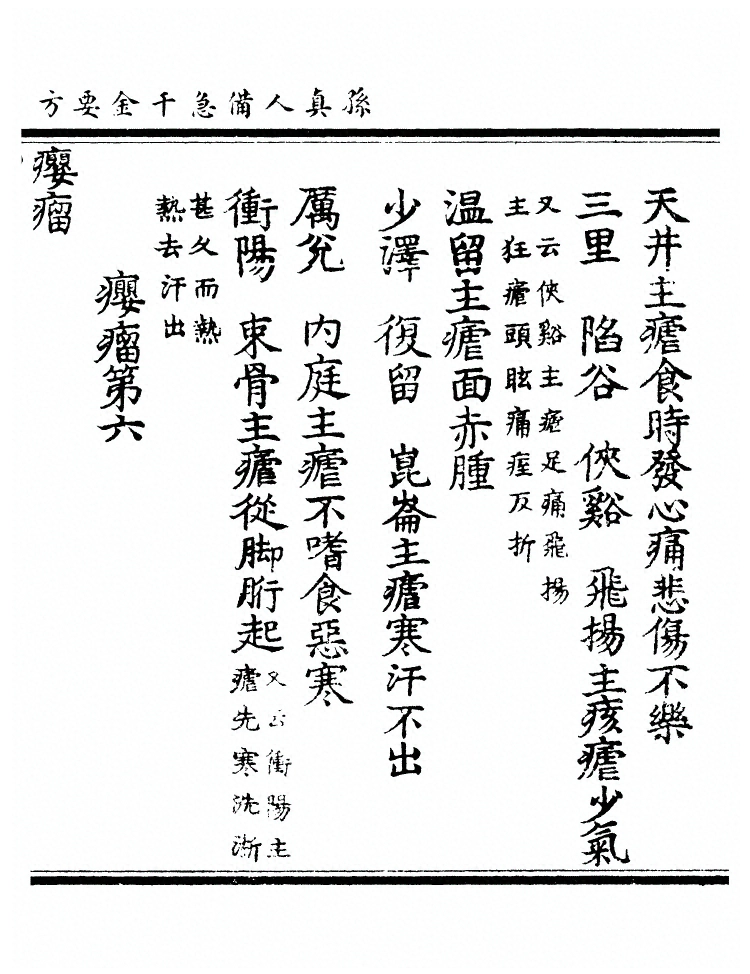 孫真人備急千金要方
天井主瘧食時發心痛悲傷不樂
三里　陷谷　俠谿　飛揚主痎瘧少氣
又云俠谿主瘧足痛飛揚
主狂瘧頭眩痛痓反折
温留主瘧面赤腫
少澤　復留　崑崙主瘧寒汗不出
厲兊　內庭主瘧不嗜食惡寒
衝陽　束骨主瘧從脚胻起又云衝陽主
瘧先寒洗淅
甚久而熱
熱去汗出
癭瘤第六
癭瘤